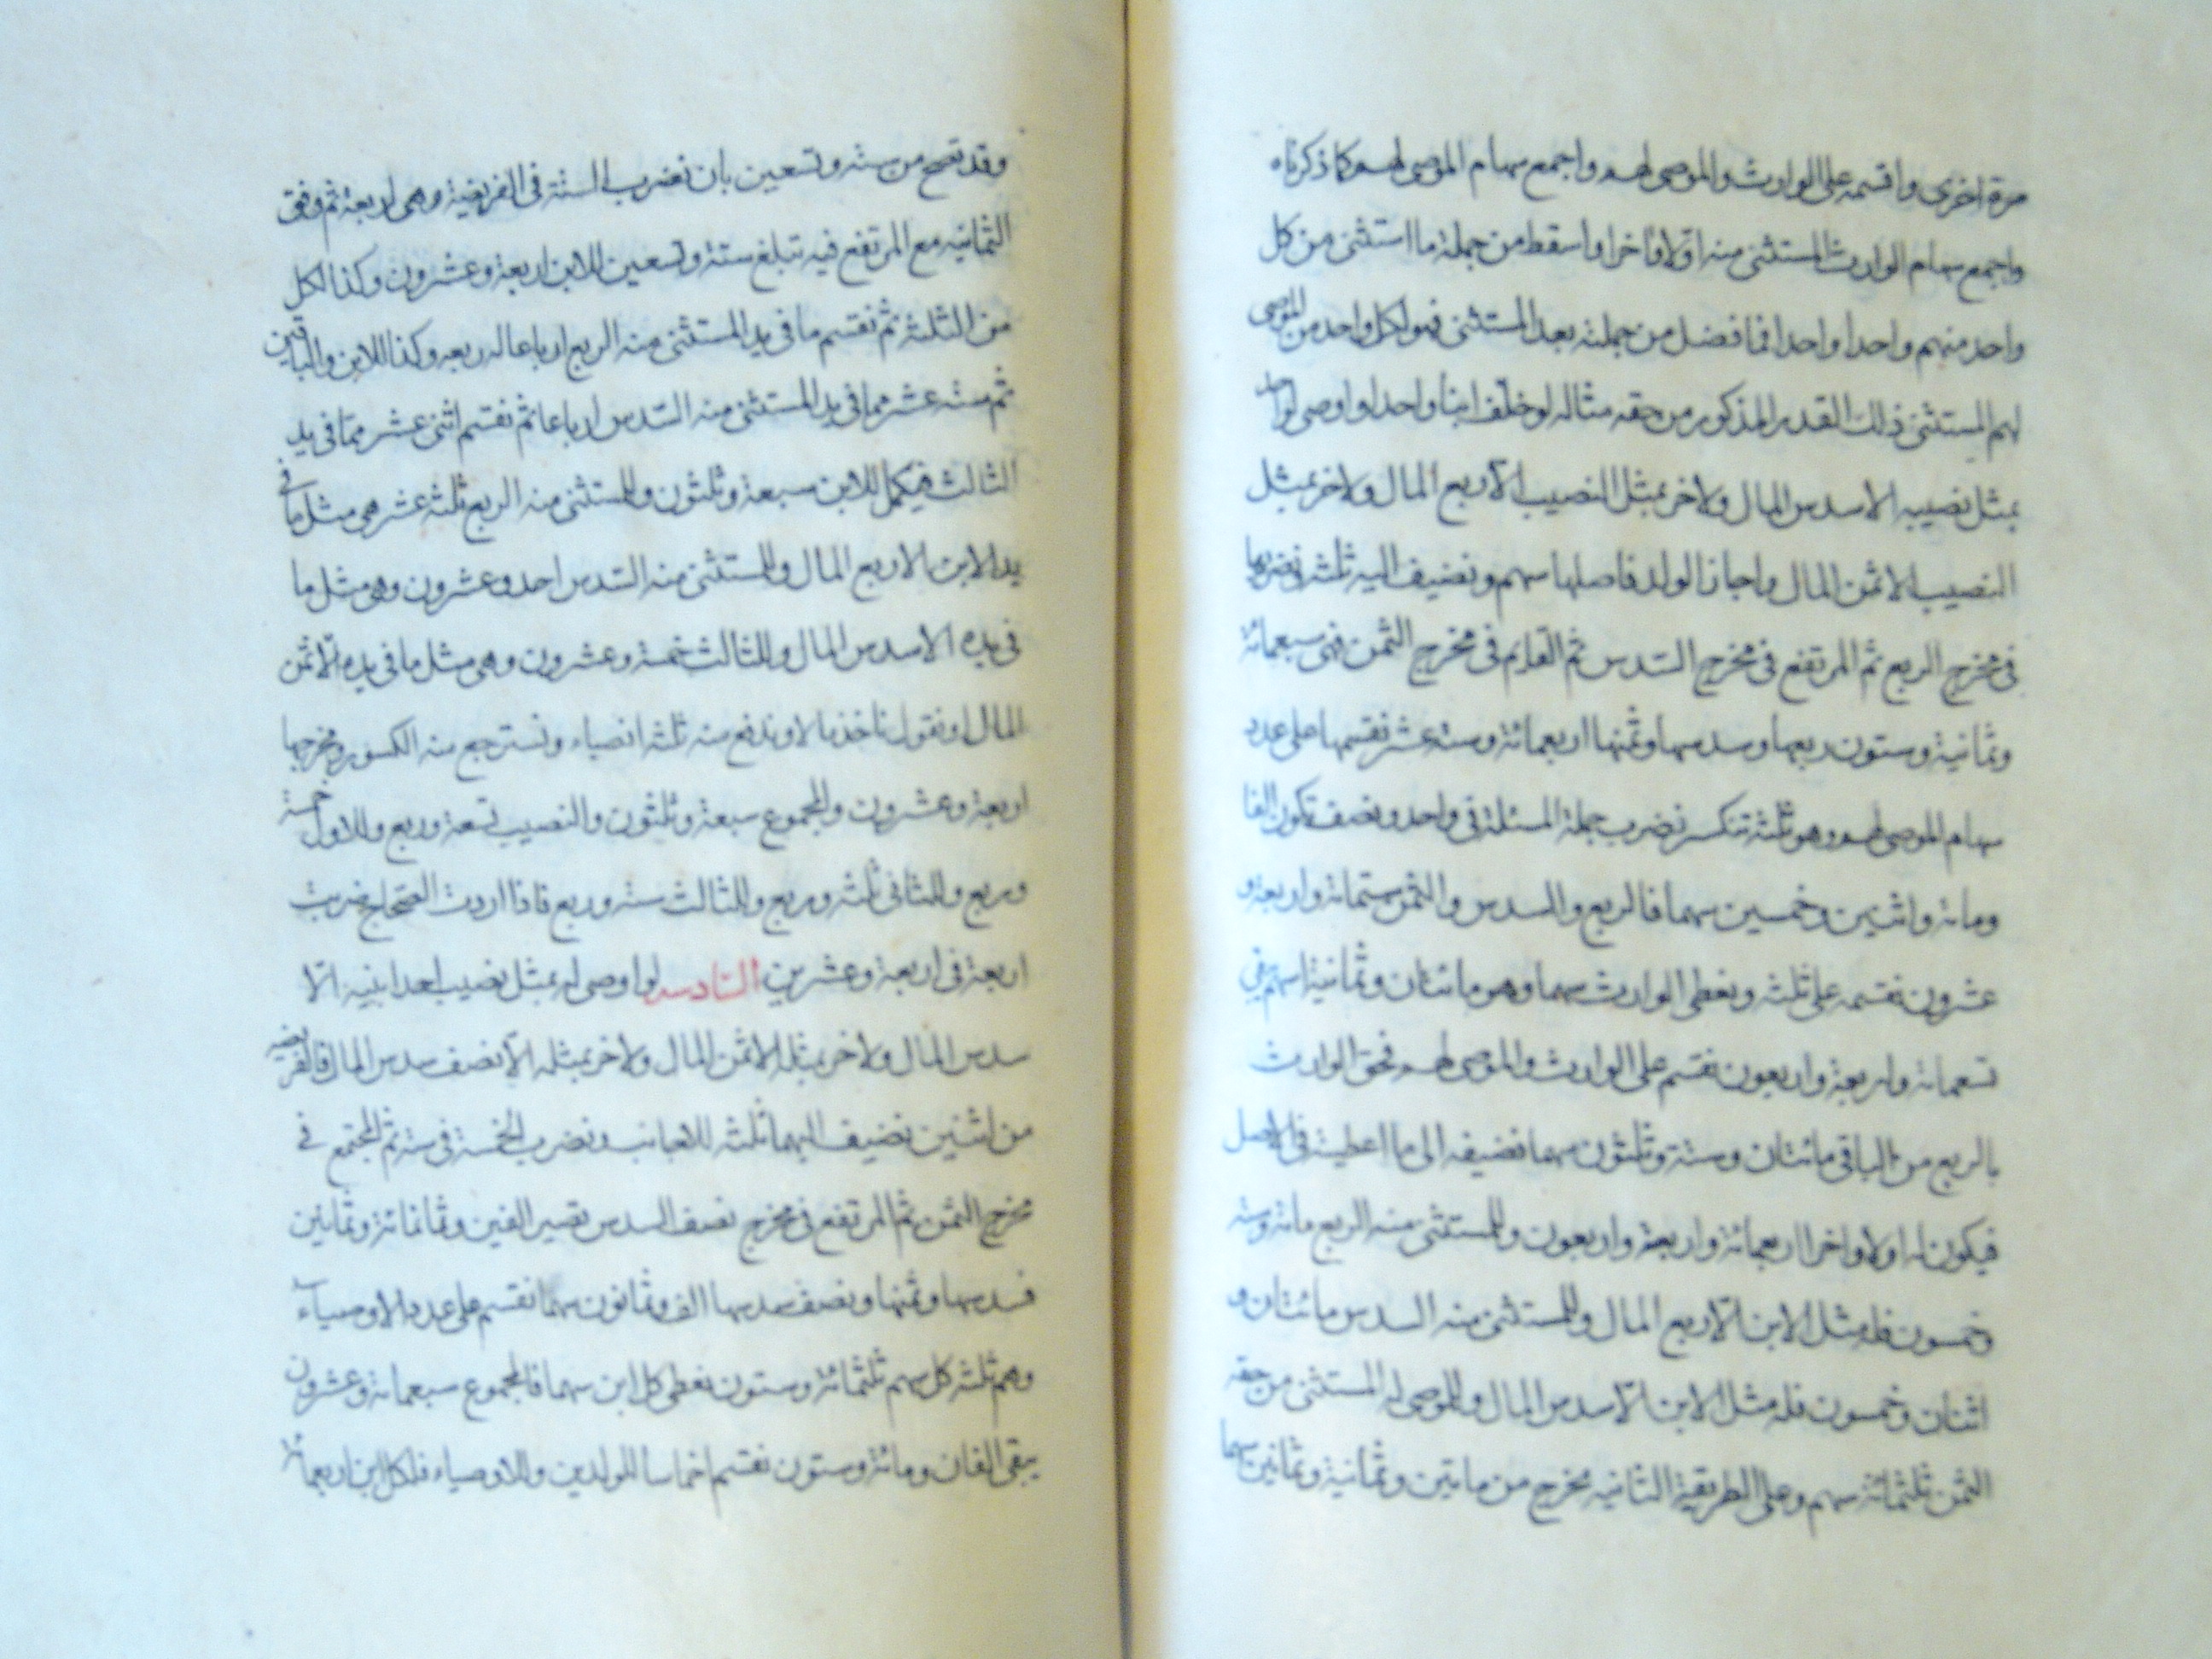 مرة اخرى واقسمه على الوارث والموصى لهم واجمع سهام الموصى لهم كما ذكرناه
واجمع سهام الوارث المستثنى منه اولا واخرا واسقط من جملة ما استثنى من كل
واحد منهم واحدا واحدا فما فضل من جملته بعد المستثنى فهو لكل واحد من الموصى
لهم المستثنى ذلك القدر المذكور من حقه مثاله لو خلف ابنا واحدا واوصى لواحد
بمثل نصيبه الا سدس المال ولاخر بمثل النصيب الا ربع المال ولاخر بمثل
النصيب الا ثمن المال واجاز الولد فاصلها سهم ونضيف اليه ثلثه ونضربها
فى مخرج الربع ثم المرتفع فى مخرج السدس ثم القايم فى مخرج الثمن فهى سبعمائة
وثمانية وستون ربعها وسدسها وثمنها اربعمائة وستة عشر نقسمها على عدد
سهام الموصى لهم وهو ثلثة تنكسر نضرب جملة المسئلة فى واحد ونصف تكون الفا
ومائة واثنين وخمسين سهما فالربع والسدس والثمن ستمائة واربعة و
عشرون نقسمه على ثلثه ونعطى الوارث سهما وهو مائتان وثمانية اسهم يبقى
تسعمائة واربعة واربعون نقسم على الوارث والموصى لهم فحق الوارث
بالربع من الباقى مائتان وستة وثلثون سهما نضيفه الى ما اعطيته فى الاصل
فيكون له اولا واخرا اربعمائة واربعة واربعون وللمستثنى منه الربع مائة وستة
وخمسون فله مثل الابن الا ربع المال وللمستثنى منه السدس مائتان و
اثنان وخمسون فله مثل الابن الا سدس المال وللموصى له المستثنى من حقه
الثمن ثلثمائة سهم وعلى الطريقة الثانيه تخرج من مايتين وثمانية وثمانين سهما
وقد تصح من ستة وتسعين بان نضرب الستة فى الفريضة وهى اربعة ثم وفق
الثمانيه مع المرتفع فيه تبلغ ستة وتسعين للابن اربعة وعشرون وكذا لكل
من الثلثه ثم نقسم ما فى يد المستثنى منه الربع ارباعا له ربعه وكذا للابن والباقين
ثم ستة عشر مما فى يد المستثنى منه السدس ارباعا ثم نقسم اثنى عشر مما فى يد
الثالث فيكمل للابن سبعة وثلثون وللمستثنى منه الربع ثلثة عشر هى مثل ما فى
يد الابن الا ربع المال وللمستثنى منه السدس احد وعشرون وهو مثل ما
فى يده الا سدس المال وللثالث خمسة وعشرون وهى مثل ما فى يده الا ثمن
المال او نقول ناخذ مالا وندفع منه ثلثه انصباء ونسترجع منه الكسور ومخرجها
اربعة وعشرون والمجموع سبعة وثلثون والنصيب تسعة وربع وللاول خمسة
وربع وللثانى ثلثه وربع وللثالث ستة وربع فاذا اردت الصحاح ضربت
اربعة فى اربعة وعشرين السادسه لو اوصى له بمثل نصيب احد ابنيه الا
سدس المال ولاخر بمثله الا ثمن المال ولاخر بمثله الا نصف سدس المال فالفريضه
من اثنين نضيف اليهما ثلثه للاجانب ونضرب الخمسة فى ستة ثم المجتمع فى
مخرج الثمن ثم المرتفع فى مخرج نصف السدس تصير الفين وثمانمائة وثمانين
فسدسها وثمنها ونصف سدسها الف وثمانون سهما نقسم على عدد الاوصياء
وهم ثلثه كل سهم ثلثمائة وستون نعطى كل ابن سهما فالمجموع سبعمائة وعشرون
يبقى الفان ومائة وستون نقسم اخماسا للولدين وللاوصياء فلكل ابن اربعمائة